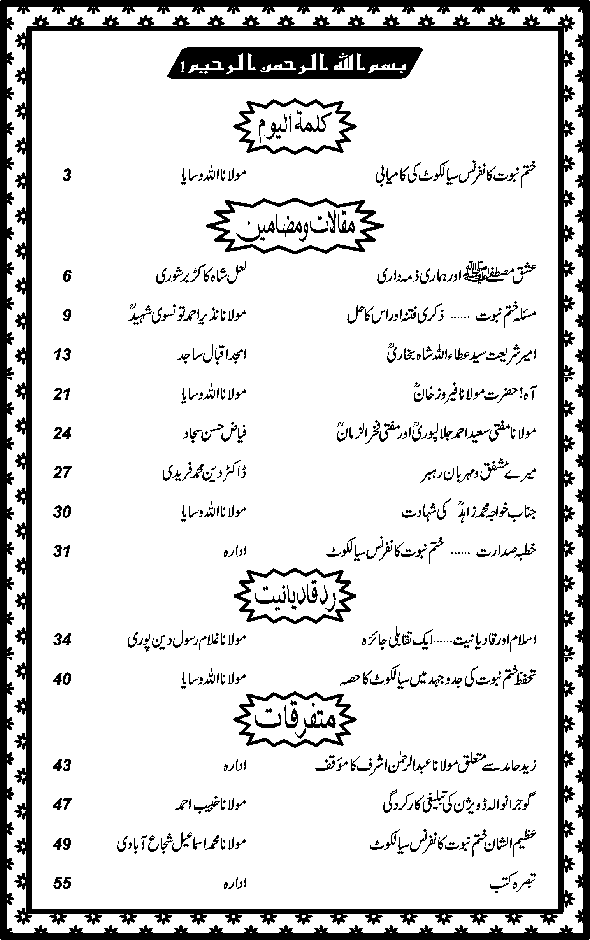 بسم اللہ الرحمن الرحیم!
کلمۃ الیوم
ختم نبوت کانفرنس سیالکوٹ کی کامیابی مولانا اللہ وسایا 3
مقالات و مضامین
عشق مصطفیٰ ﷺ اور ہماری ذمہ داری لعل شاہ کاکڑ برشوری 6
مسئلہ ختم نبوت ...... ذکری فتنہ اور اس کا حل مولانا نذیر احمد تونسوی شہیدؒ 9
امیر شریعت سید عطاء اللہ شاہ بخاریؒ امجد اقبال ساجد 13
آہ! حضرت مولانا فیروز خانؒ مولانا اللہ وسایا 21
مولانا مفتی سعید احمد جلالپوریؒ اور مفتی فخر الزمانؒ فیاض حسن سجاد 24
میرے مشفق و مہربان رہبر ڈاکٹر دین محمد فریدی 27
جناب خواجہ محمد زاہدؒ کی شہادت مولانا اللہ وسایا 30
خطبہ صدارت ...... ختم نبوت کانفرنس سیالکوٹ ادارہ 31
رد قادیانیت
اسلام اور قادیانیت ...... ایک تقابلی جائزہ مولانا غلام رسول دین پوری 34
تحفظ ختم نبوت کی جدوجہد میں سیالکوٹ کا حصہ مولانا اللہ وسایا 40
متفرقات
زید حامد سے متعلق مولانا عبدالرحمٰن اشرف کا مؤقف ادارہ 43
گوجرانوالہ ڈویژن کی تبلیغی کارکردگی مولانا خبیب احمد 47
عظیم الشان ختم نبوت کانفرنس سیالکوٹ مولانا محمد اسماعیل شجاع آبادی 49
تبصرہ کتب ادارہ 55